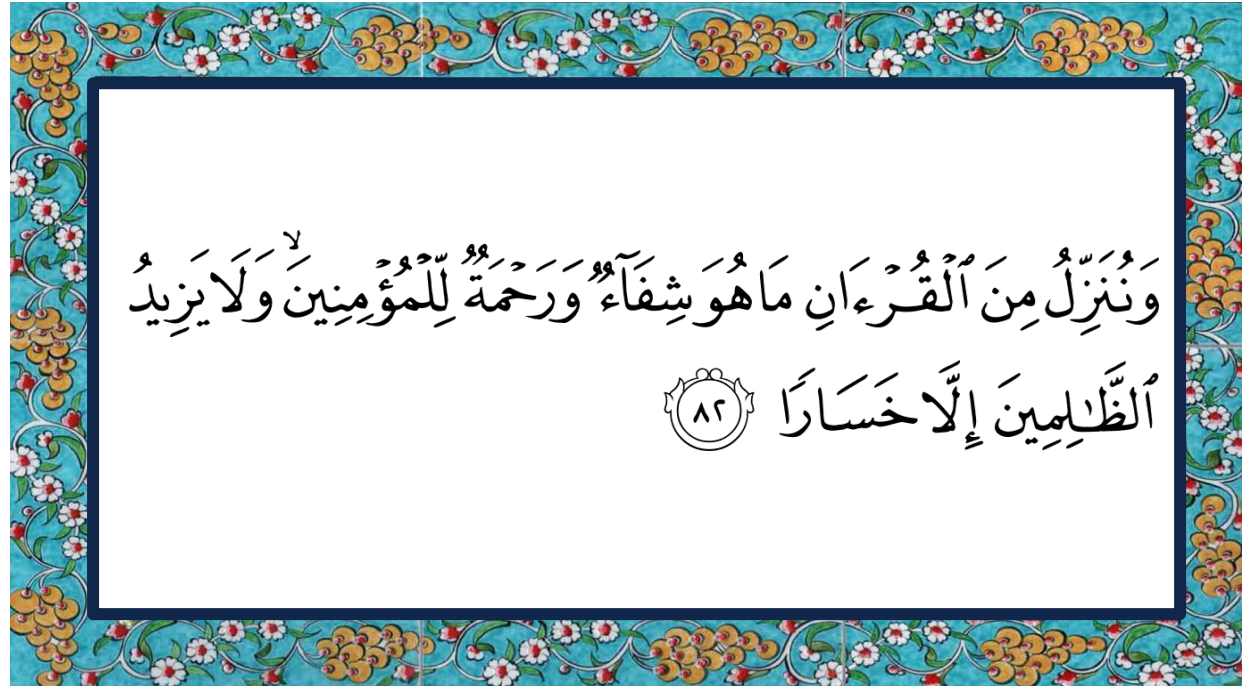 وَنُنَزِّلُ مِنَ ٱلۡقُرۡءَانِ مَا هُوَ شِفَآءٞ وَرَحۡمَةٞ لِّلۡمُؤۡمِنِينَۙ وَلَا يَزِيدُ
ٱلظَّٰلِمِينَ إِلَّا خَسَارٗا ٨٢